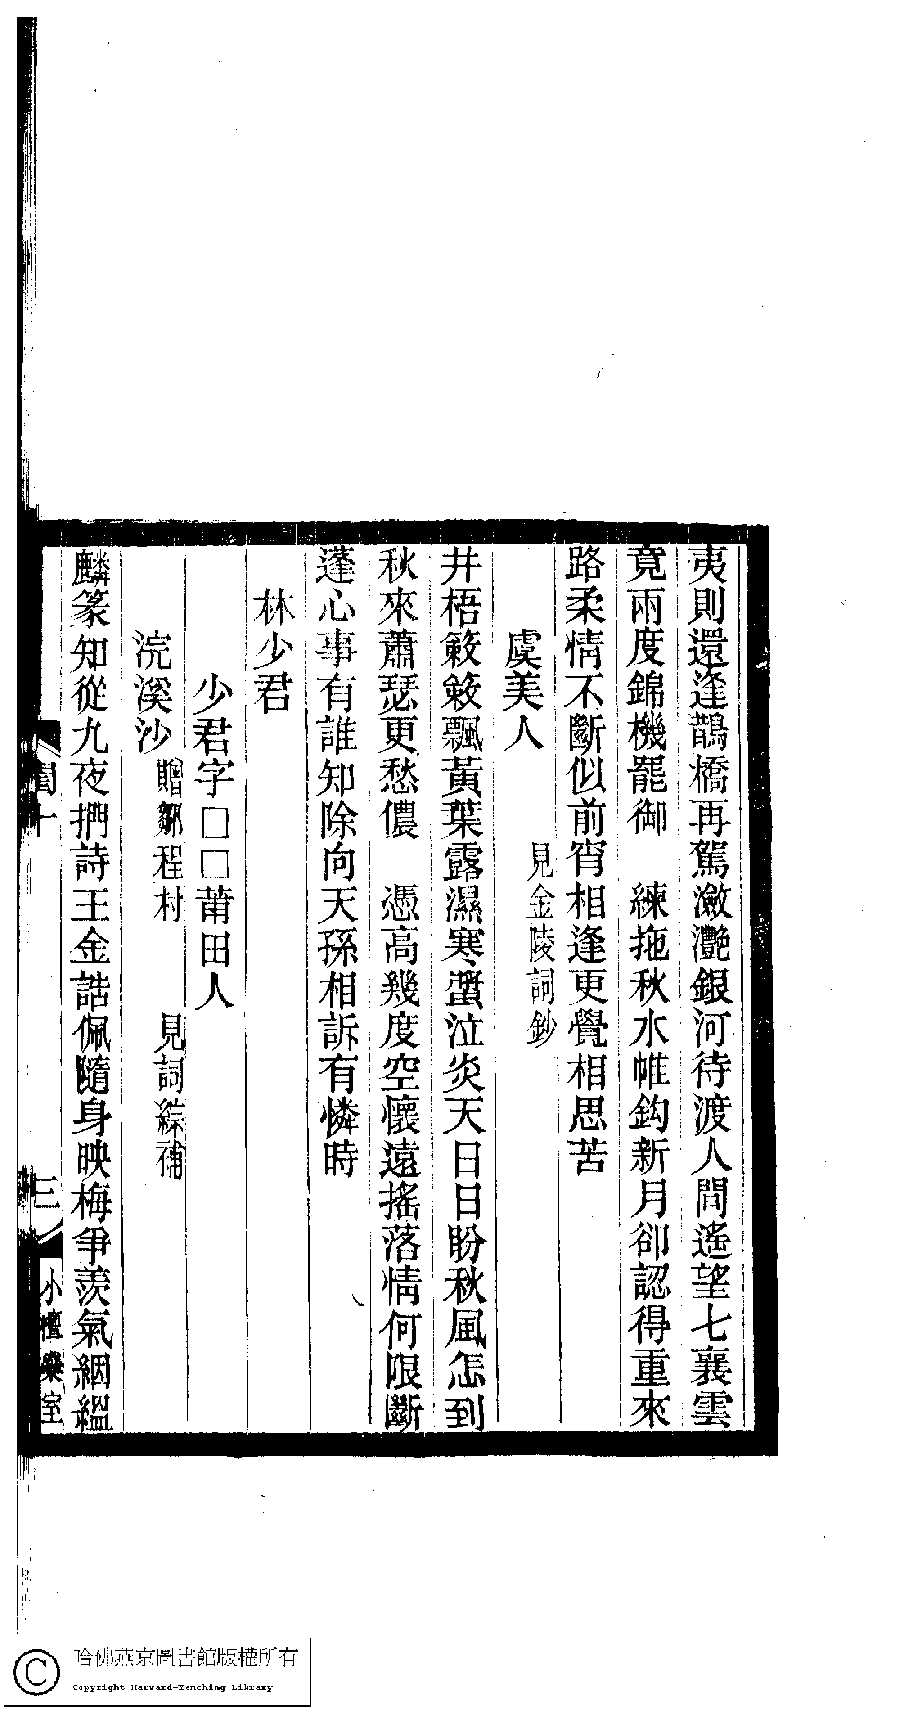 夷則還逢鵲橋再駕瀲灧銀河待渡人間遙望七襄雲
竟兩度錦機罷御　練拖秋水帷鈎新月卻認得重來
路柔情不斷似前宵相逢更覺相思苦
虞美人　見金陵詞鈔
井梧籔籔飄黃葉露濕寒螿泣炎天日日盼秋風怎到
秋來蕭瑟更愁儂　憑高幾度空懷遠搖落情何限斷
蓬心事有誰知除向天孫相訴有憐時
林少君
少君字□□莆田人
浣溪沙　贈鄒程村　見詞綜補
麟篆知從九夜捫詩王金誥佩隨身映梅爭羨氣絪縕
閨十
三
小檀欒室
哈佛燕京圖書館版權所有
Copyright Harvard-Yenching Library